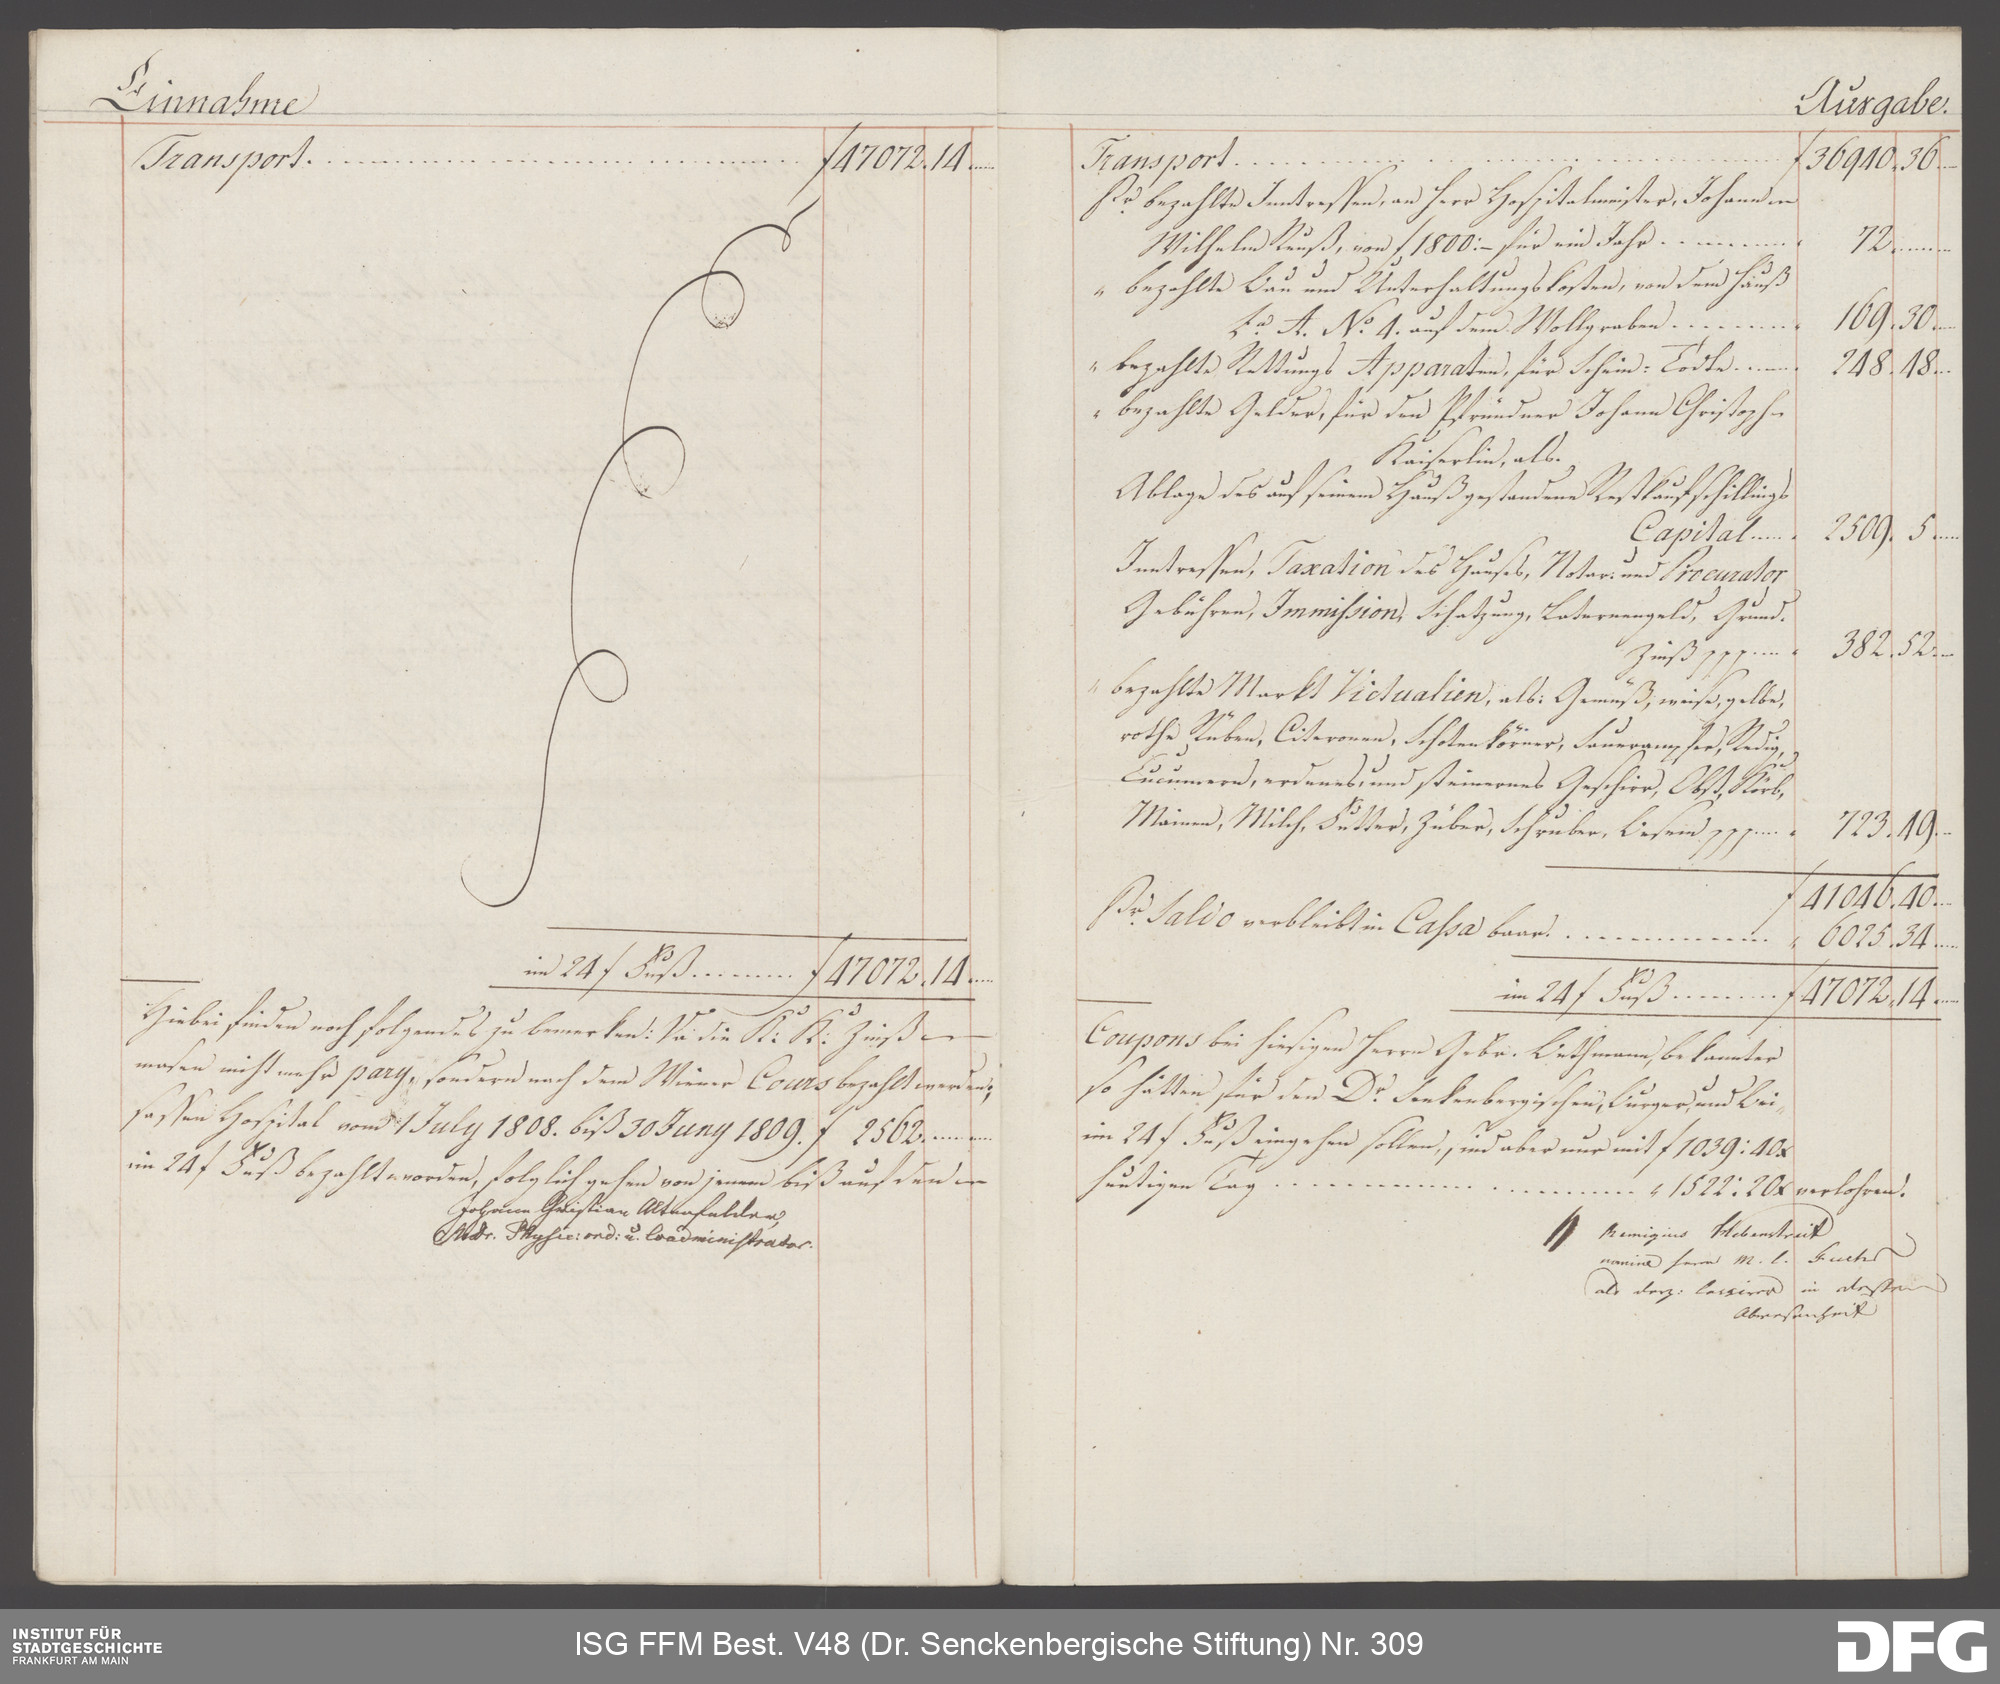 Einnahme
Transport. f 47072. 14.
im 24 f Fuß f 47072. 14.
Hiebei finden noch folgendes zu bemerken: Da die K: K: Zinß
masen nicht mehr pary, sondern nach dem Wiener Cours bezahlt werden;
sassen Hospital vom 1 July 1808. biß 30 Juny 1809. f 2562.
im 24 f Fuß bezahlt worden, folglich gehen von jenem biß auf den
Johann Christian Altenfelder,
Mdr. Physic: ord: u. Coadministrator.
Ausgabe.
Transport f 36940. 36
Pr. bezahlte Inntressen, an Herr Hospitalmeister, Johann
Wilhelm Reuß, von f 1800:– für ein Jahr 72.
" bezahlte Bau und Unterhaltungskosten, von dem Hauß
La A. No 4. auf dem Wollgraben 169. 30.
" bezahlte Rettungs Apparaten, für Schein: Todte 248. 48.
" bezahlte Gelder, für den Pfründner Johann Christoph
Kaiserlin, als.
Ablage des auf seinem Hauß gestandene Restkaufschillings
Capital 2509. 5
Inntressen, Taxation des Hauses, Notar: und Procurator
Gebühren, Immission, Schatzung, Laternengeld, Grund.
Zinß ppp 382. 52.
" bezahlte Markt Victualien, als: Gemüß, weise, gelbe,
rothe Rüben, Citeronen, Schotenkörner, Sauerampfer, Redig,
Cucumern, erdenes, und steinernes Geschirr, Obst, Körb,
Mainen, Milch, Butter, Züber, Schruber, Besem ppp 723. 49.
f 41046. 40.
Pr. Saldo verbleibt in Cassa baar. " 6025. 34
im 24 f Fuß f 47072. 14.
Coupons bei hiesigen Herrn Gebr. Bethmann, bekannter
so hätten für den Dr. Senkenbergischen, Burger, und Bei-
im 24 f Fuß eingehen sollen, sind aber nur mit f 1039: 40x
heutigen Tag " 1522: 20x verlohren.
Remigius Hebenstreit
nomine Herrn M. C. Fuchs
als derz: Cassirer in dessen
Abwesenheit
INSTITUT FÜR
STADTGESCHICHTE
FRANKFURT AM MAIN
ISG FFM Best. V48 (Dr. Senckenbergische Stiftung) Nr. 309
DFG